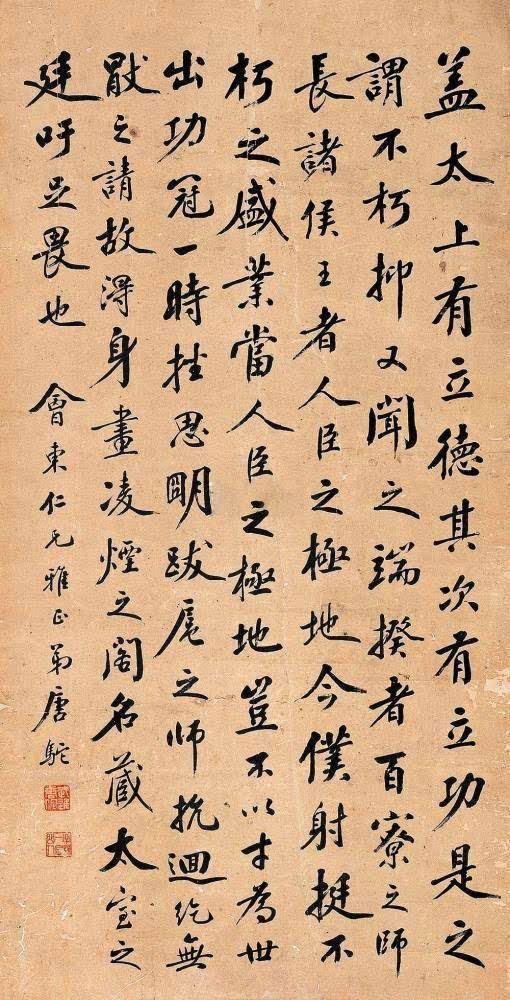 盖太上有立德其次有立功是之
謂不朽抑又聞之端揆者百寮之師
長諸侯王者人臣之極地今僕射挺不
朽之盛業當人臣之極地豈不以才為世
出功冠一時挫思明跋扈之師抗迴紇無
猒之請故得身畫凌煙之閣名蔵太室之
廷吁足畏也
會東仁兄雅正弟唐駝